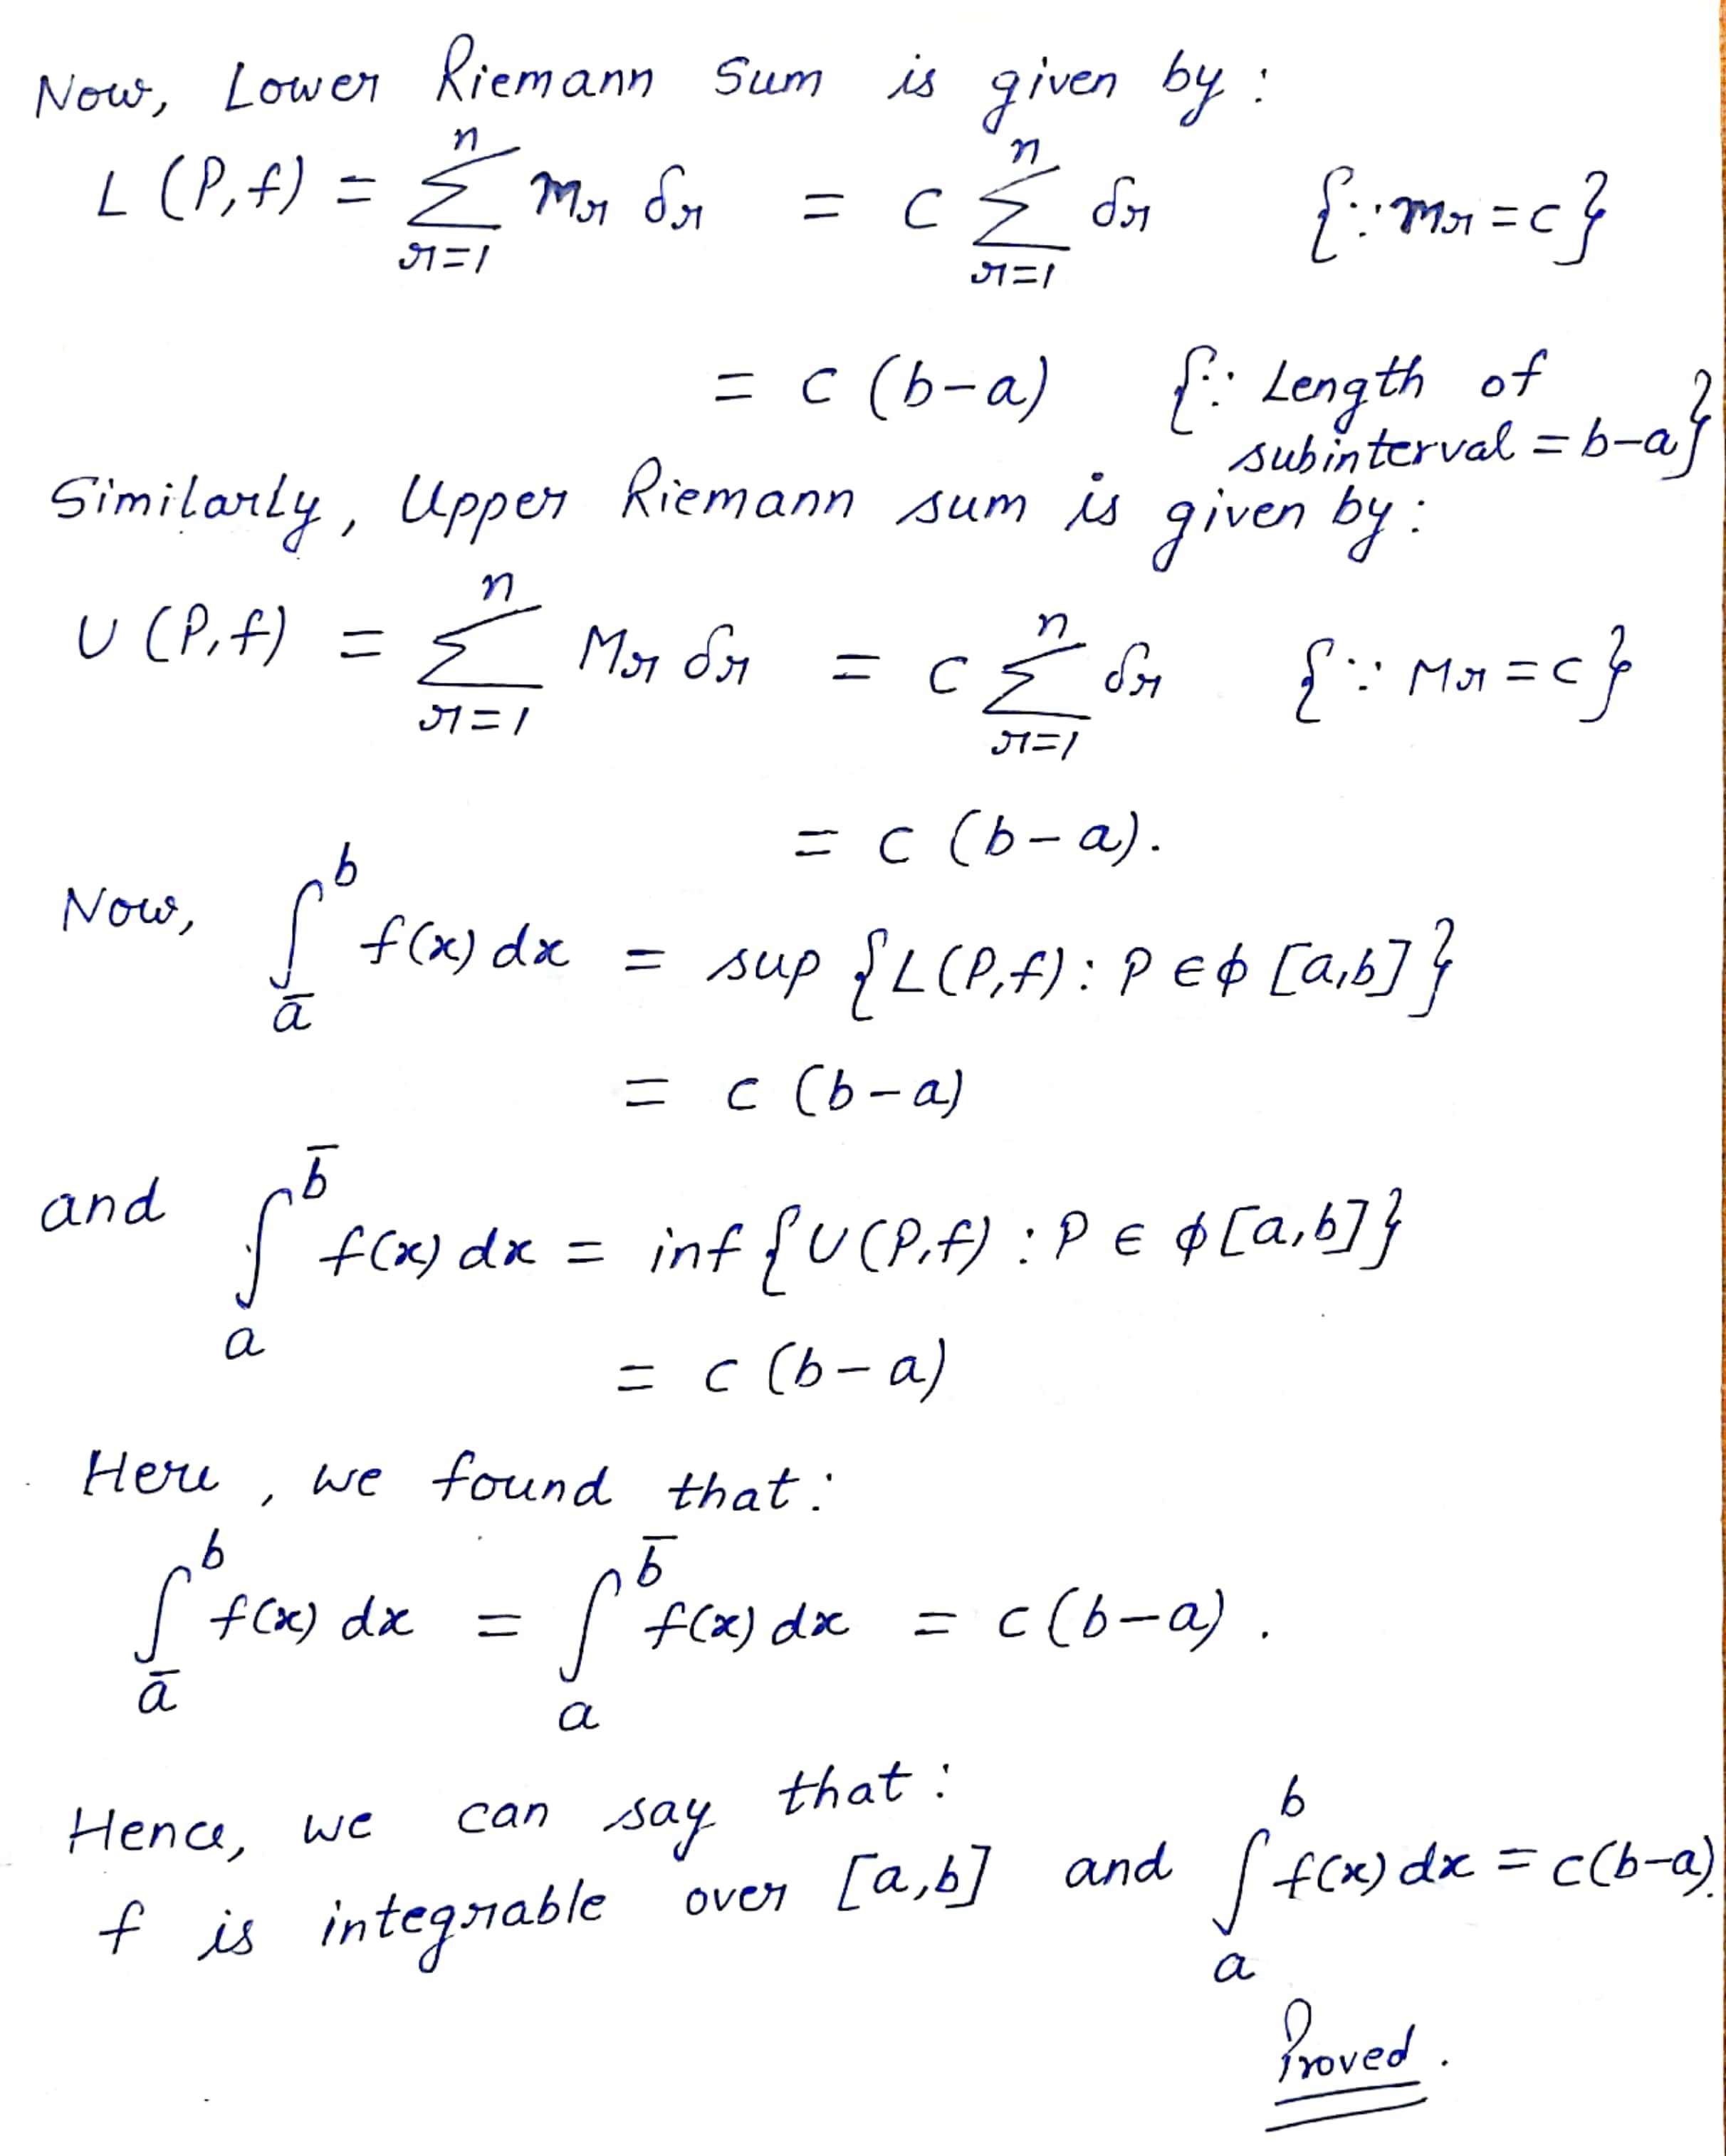 Now, Lower Riemann Sum is given by :
L (P,f) = n∑r=1 mr δr = c n∑r=1 δr {∵ mr = c}
= c (b-a) {∵ Length of
subinterval = b-a}
Similarly, Upper Riemann sum is given by :
U (P,f) = n∑r=1 Mr δr = c n∑r=1 δr {∵ Mr = c}
= c (b-a).
Now, ∫a̲^b f(x) dx = sup {L(P,f) : P ∈ ϕ [a,b]}
= c (b-a)
and ∫a^b̅ f(x) dx = inf {U(P,f) : P ∈ ϕ [a,b]}
= c (b-a)
Here, we found that :
∫a̅^b f(x) dx = ∫a^b̅ f(x) dx = c(b-a) .
Hence, we can say that :
f is integrable over [a,b] and ∫a^b f(x) dx = c(b-a).
Proved .